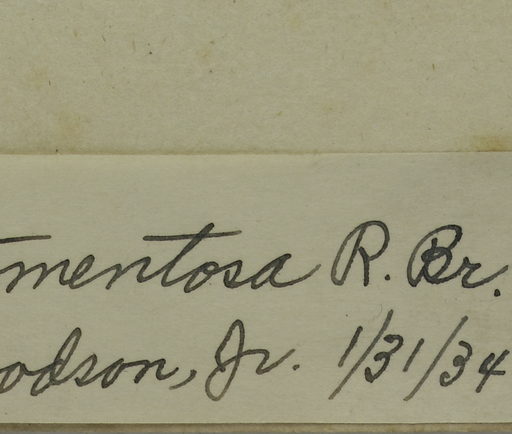 mentosa R. Br.
odson, Jr. 1/31/34